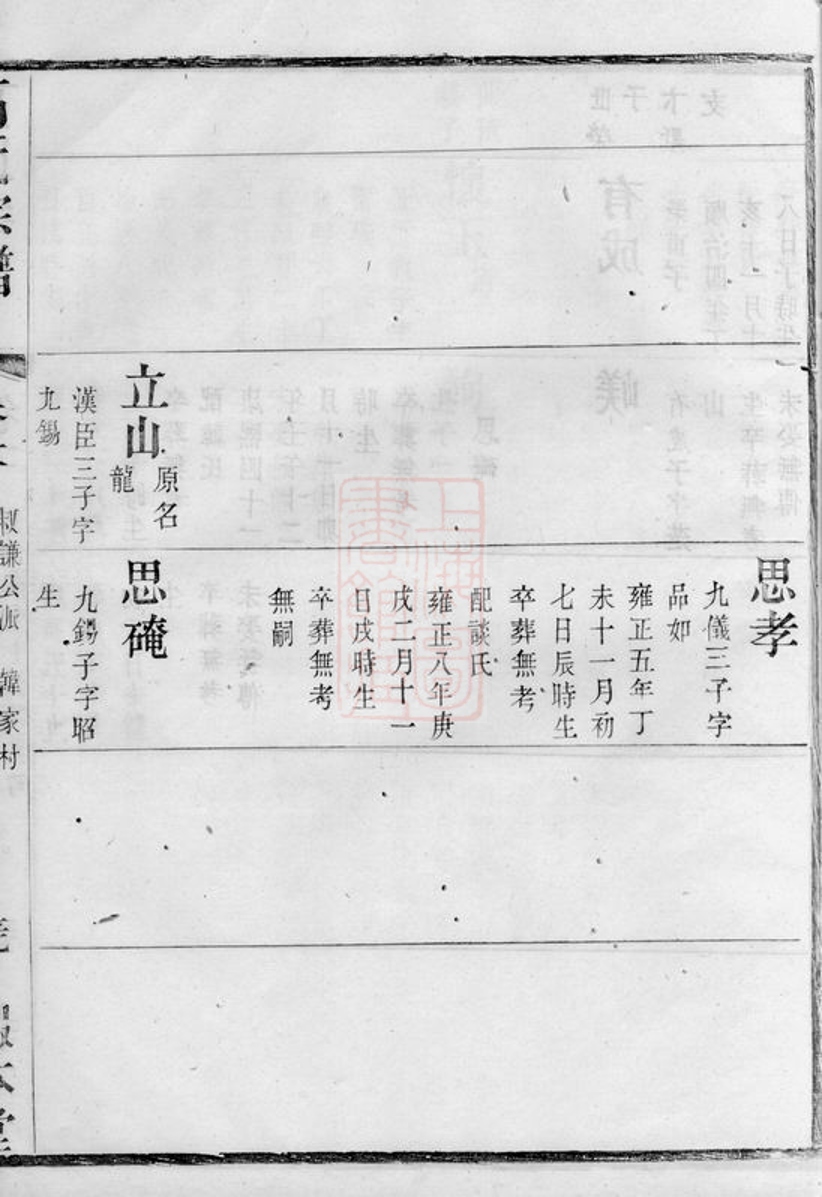 思孝
九儀三子字
品如
雍正五年丁
未十一月初
七日辰時生
卒葬無考
配談氏
雍正八年庚
戌二月十一
日戌時生
卒葬無考
無嗣
立山
原名
龍
漢臣三子字
九錫
思硽
九錫子字昭
生
宗譜
叔謙公派
韓家村
本堂
上海圖書館藏